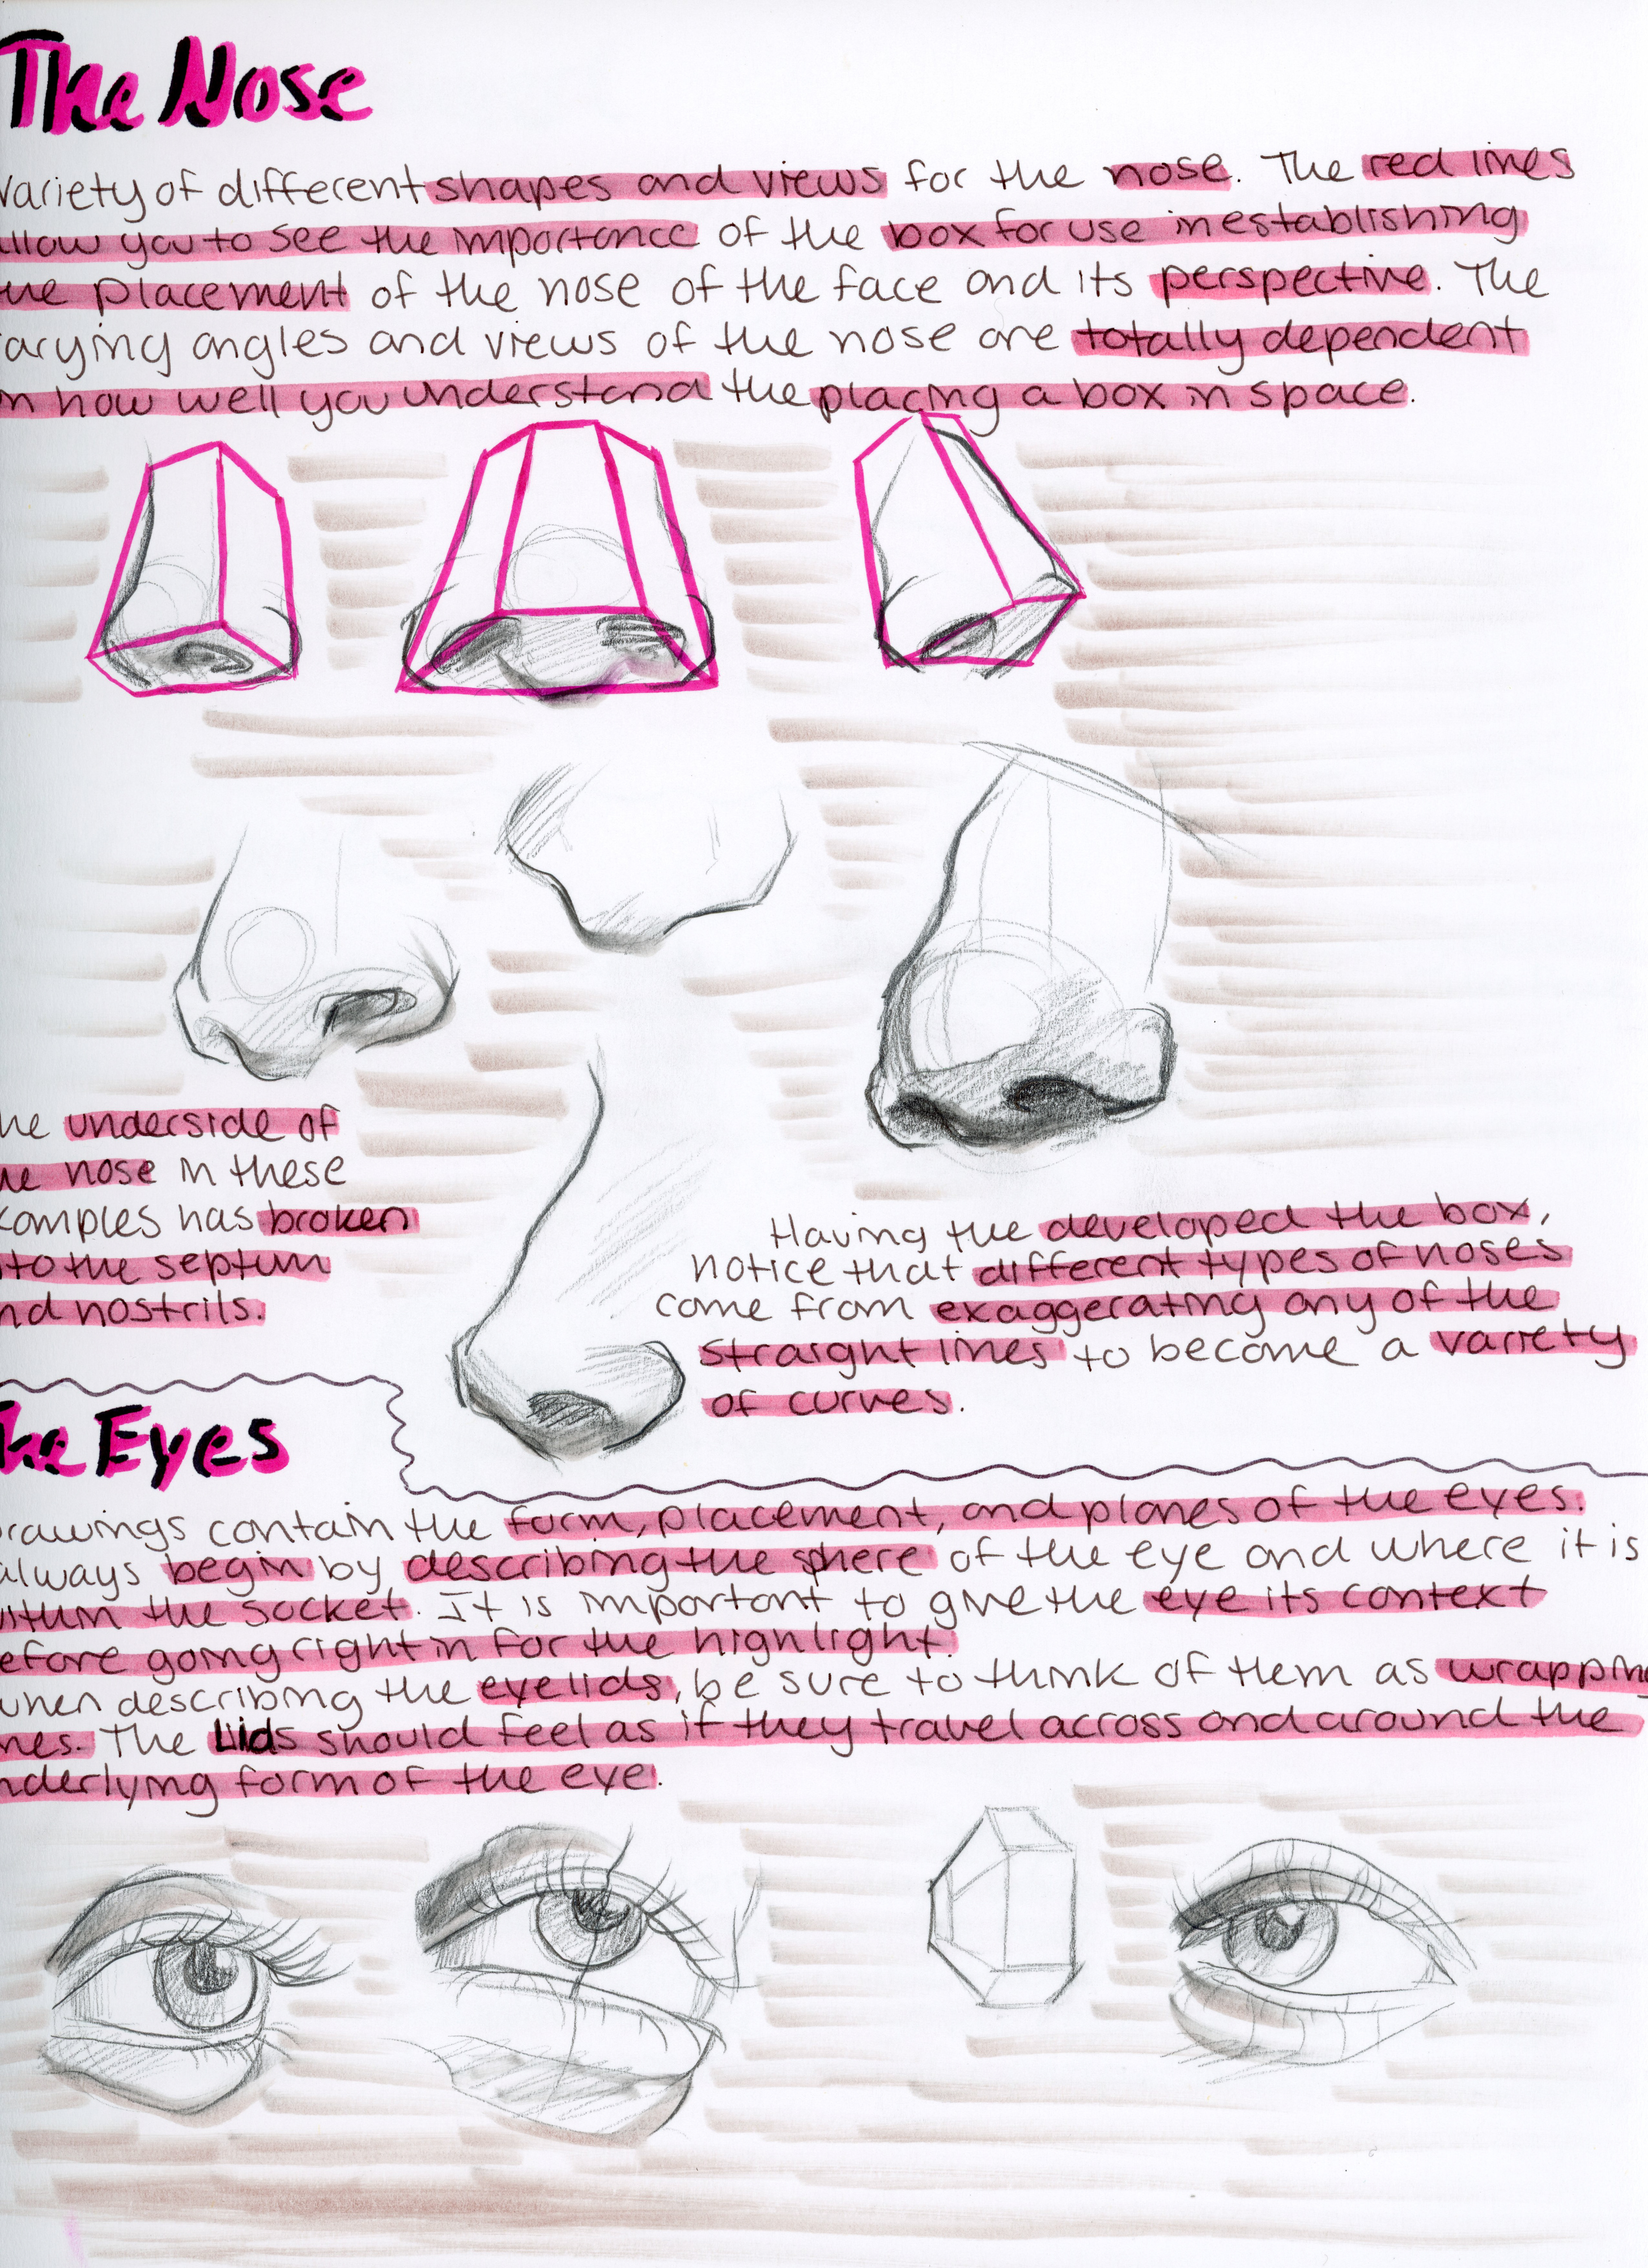 The Nose
Variety of different shapes and views for the nose. The red lines
allow you to see the importance of the box for use in establishing
the placement of the nose of the face and its perspective. The
varying angles and views of the nose are totally dependent
on how well you understand the placing a box in space.
the underside of
the nose in these
examples has broken
into the septum
and nostrils.
Having the developed the box,
notice that different types of noses
come from exaggerating any of the
straight lines to become a variety
of curves.
The Eyes
Drawings contain the form, placement, and planes of the eyes.
always begin by describing the sphere of the eye and where it is
within the socket. It is important to give the eye its context
before going right in for the highlight.
when describing the eyelids, be sure to think of them as wrapping
The Lids should feel as if they travel across and around the
underlying form of the eye.